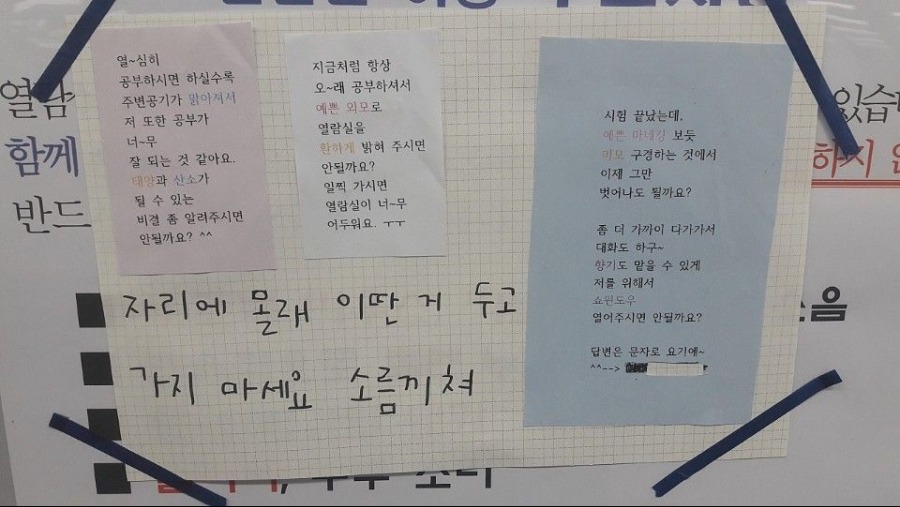 열~심히
공부하시면 하실수록
주변공기가 맑아져서
저 또한 공부가
너~무
잘 되는 것 같아요.
태양과 산소가
될 수 있는
비결 좀 알려주시면
안될까요? ^^
지금처럼 항상
오~래 공부하셔서
예쁜 외모로
열람실을
환하게 밝혀 주시면
안될까요?
일찍 가시면
열람실이 너~무
어두워요. ㅜㅜ
시험 끝났는데,
예쁜 마네킹 보듯
미모 구경하는 것에서
이제 그만
벗어나도 될까요?
좀 더 가까이 다가가서
대화도 하구~
향기도 맡을 수 있게
저를 위해서
쇼윈도우
열어주시면 안될까요?
답변은 문자로 요기에~
^^-->
자리에 몰래 이딴 거 두고
가지 마세요 소름끼쳐
열람
있습
함께
하지
반드
소음
소리